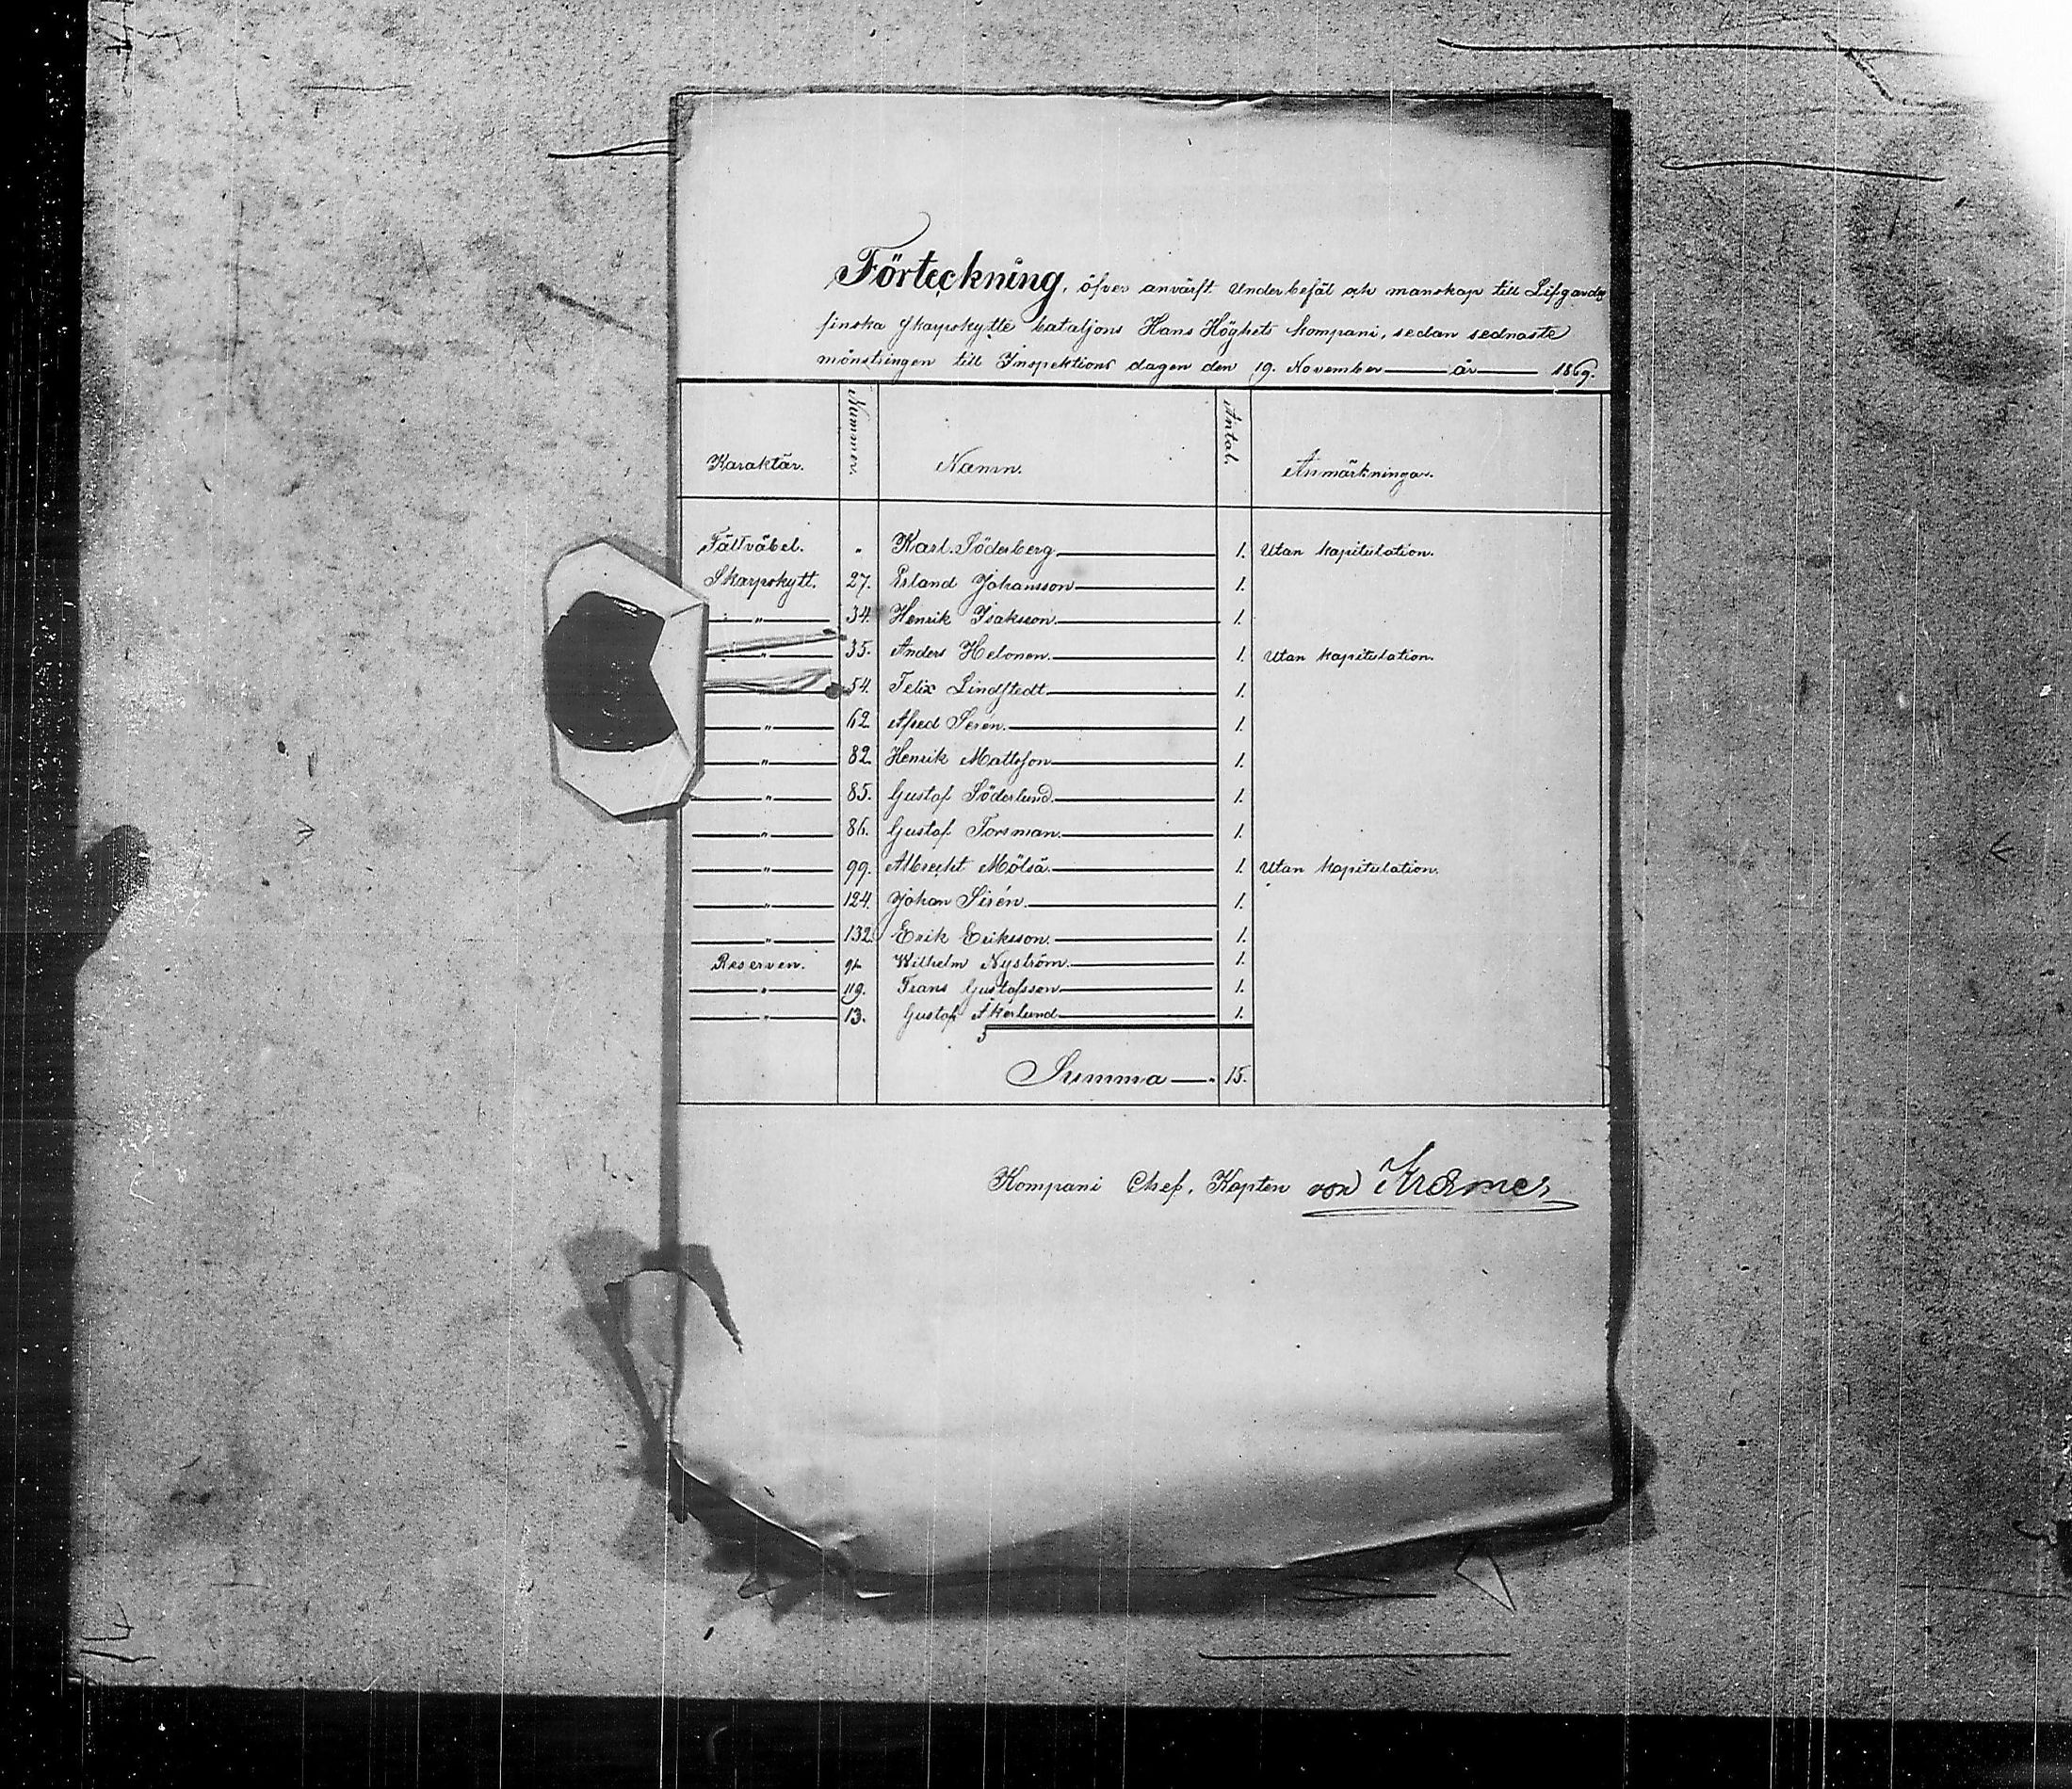 Förteckning, öfver anvärft Underbefäl och manskap till Lifgardes
finska Skarpskytte bataljons Hans Höghets kompani, sedan sednaste
mönstringen till Inspektions dagen den 19. November — år — 1869.
Karaktär. Nummer. Namn. Antal. Anmärkningar.
Fältväbel. " Karl Söderberg 1. Utan kapitulation.
Skarpskytt. 27. Erland Johansson 1.
" 34. Henrik Isaksson 1.
" 35. Anders Helonen 1. Utan kapitulation.
" 54. Felix Lindstedt 1.
" 62 Alfred Serén 1.
" 82 Henrik Mattsson 1.
" 85. Gustaf Söderlund 1.
" 86. Gustaf Forsman 1.
" 99. Albrecht Mölsä 1. Utan kapitulation.
" 124. Johan Sirén 1.
" 132 Erik Eriksson 1.
Reserven. Wilhelm Nyström 1.
" 119. Frans Gustafsson 1.
" 13. Gustaf Åkerlund 1.
Summa — 15.
Kompani Chef, Kapten von Kræmer